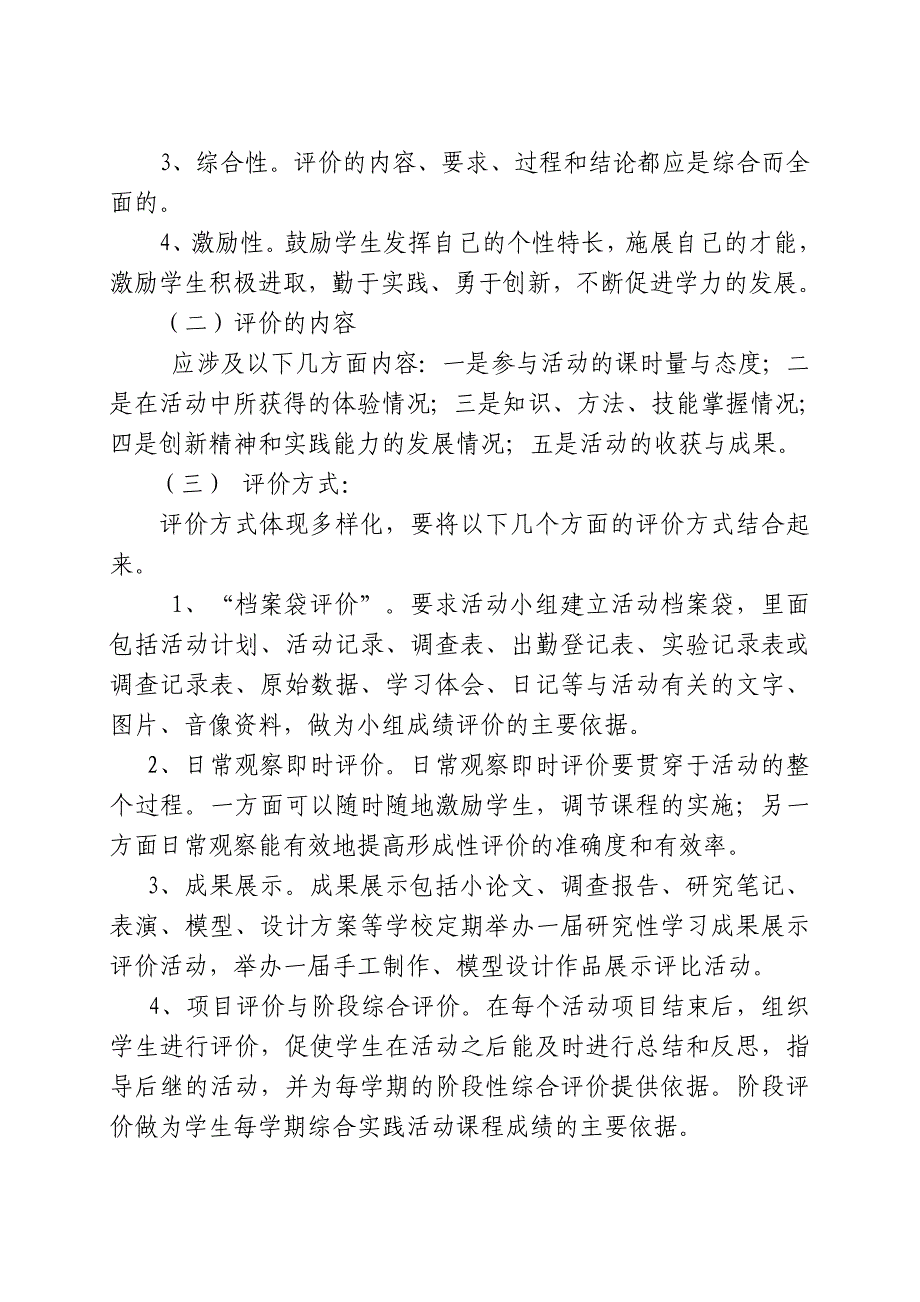 3、综合性。评价的内容、要求、过程和结论都应是综合而全
面的。
4、激励性。鼓励学生发挥自己的个性特长，施展自己的才能，
激励学生积极进取，勤于实践、勇于创新，不断促进学力的发展。
（二）评价的内容
应涉及以下几方面内容：一是参与活动的课时量与态度；二
是在活动中所获得的体验情况；三是知识、方法、技能掌握情况；
四是创新精神和实践能力的发展情况；五是活动的收获与成果。
（三） 评价方式：
评价方式体现多样化，要将以下几个方面的评价方式结合起
来。
1、“档案袋评价”。要求活动小组建立活动档案袋，里面
包括活动计划、活动记录、调查表、出勤登记表、实验记录表或
调查记录表、原始数据、学习体会、日记等与活动有关的文字、
图片、音像资料，做为小组成绩评价的主要依据。
2、日常观察即时评价。日常观察即时评价要贯穿于活动的整
个过程。一方面可以随时随地激励学生，调节课程的实施；另一
方面日常观察能有效地提高形成性评价的准确度和有效率。
3、成果展示。成果展示包括小论文、调查报告、研究笔记、
表演、模型、设计方案等学校定期举办一届研究性学习成果展示
评价活动，举办一届手工制作、模型设计作品展示评比活动。
4、项目评价与阶段综合评价。在每个活动项目结束后，组织
学生进行评价，促使学生在活动之后能及时进行总结和反思，指
导后继的活动，并为每学期的阶段性综合评价提供依据。阶段评
价做为学生每学期综合实践活动课程成绩的主要依据。